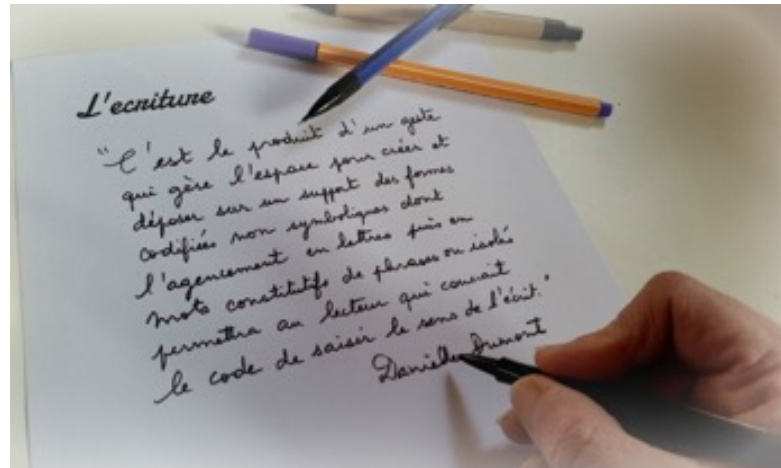 L'ecriture
"C'est le produit d'un geste
qui gère l'espace pour créer et
déposer sur un support des formes
codifiées non symboliques dont
l'agencement en lettres puis en
mots constitutifs de phrases ou isolés
permettra au lecteur qui connait
le code de saisir le sens de l'écrit."
Danielle Dumont